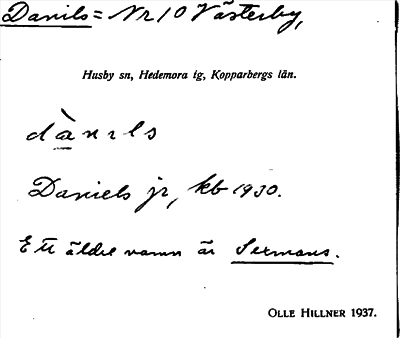 Danils = Nr 10 Västerby,
Husby sn, Hedemora tg, Kopparbergs län.
dànɩls
Daniels jr, kb 1930.
Ett äldre namn är Sexmans.
OLLE HILLNER 1937.